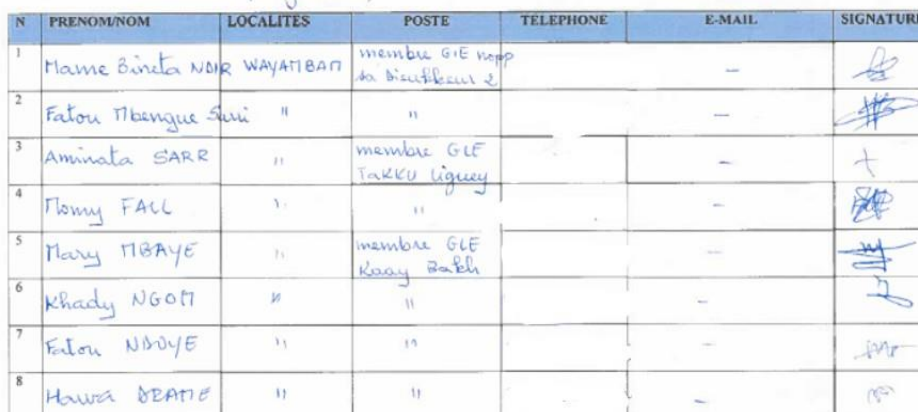 N PRENOM/NOM LOCALITES POSTE TELEPHONE E-MAIL SIGNATURE
1 Mame Bineta NDIR WAYAMBAM membre GIE nopp - 
sa Dieukkeur 2
2 Fatou Mbengue " " -
3 Aminata SARR " membre GIE -
Takku Liguey
4 Momy FALL " " -
5 Mary MBAYE " membre GIE -
Kaay Bakh
6 Khady NGOM " " -
7 Fatou NDOYE " " -
8 Hawa DRAME " " -